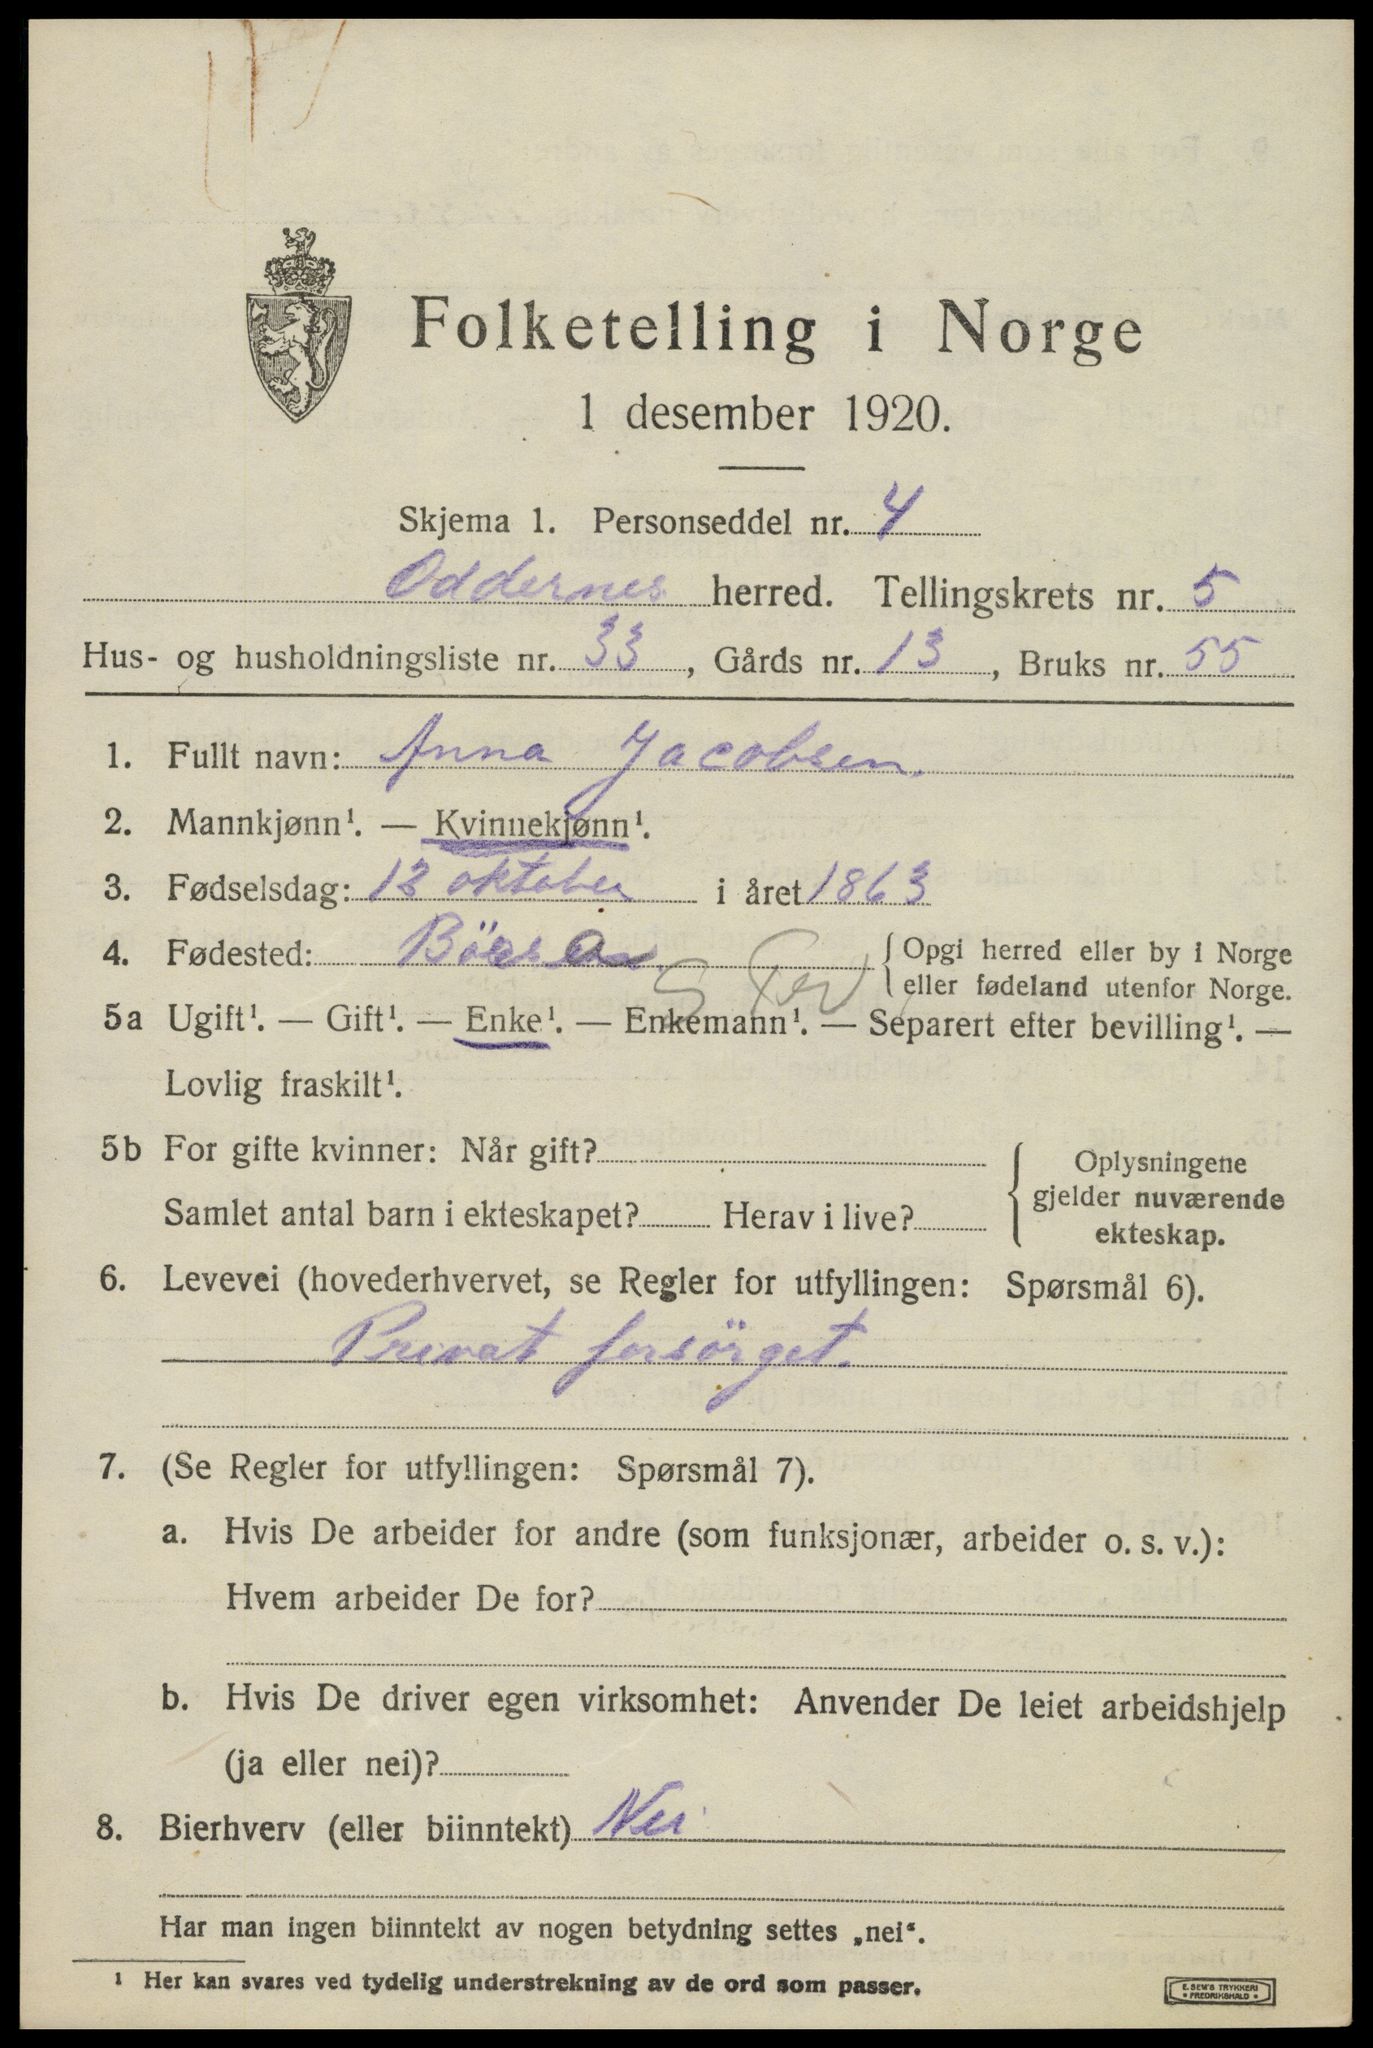 Folketelling i Norge
1 desember 1920.
Skjema 1. Personseddel nr. 4
Oddernes herred. Tellingskrets nr. 5
Hus- og husholdningsliste nr. 33, Gårds nr. 13, Bruks nr. 55
1. Fullt navn: Anna Jacobsen.
2. Mannkjønn¹. — Kvinnekjønn¹.
3. Fødselsdag: 12 oktober i året 1863
4. Fødested: { Opgi herred eller by i Norge
eller fødeland utenfor Norge.
5a Ugift¹. — Gift¹. — Enke¹. — Enkemann¹. — Separert efter bevilling¹. —
Lovlig fraskilt¹.
5b For gifte kvinner: Når gift? { Oplysningene
gjelder nuværende
Samlet antal barn i ekteskapet? Herav i live?
ekteskap.
6. Levevei (hovederhvervet, se Regler for utfyllingen: Spørsmål 6).
Privat forsörget.
7. (Se Regler for utfyllingen: Spørsmål 7).
a. Hvis De arbeider for andre (som funksjonær, arbeider o. s. v.):
Hvem arbeider De for?
b. Hvis De driver egen virksomhet: Anvender De leiet arbeidshjelp
(ja eller nei)?
8. Bierhverv (eller biinntekt) Nei
Har man ingen biinntekt av nogen betydning settes „nei“.
¹ Her kan svares ved tydelig understrekning av de ord som passer.
E. SEM'S TRYKKERI
• FREDRIKSHALD •